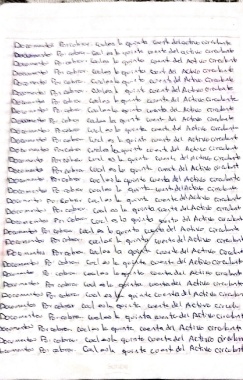 Documentos Por cobrar. Cual es la quinta cuenta del activo circulante
Documentos Por cobrar. Cual es la quinta cuenta del Activo circulante
Documentos Por cobrar. Cual es la quinta cuenta del Activo circulante
Documentos Por cobrar. Cual es la quinta cuenta del Activo circulante
Documentos Por cobrar. Cual es la quinta cuenta del Activo circulante
Documentos Por cobrar. Cual es la quinta cuenta del Activo circulante
Documentos Por cobrar. Cual es la quinta cuenta del Activo circulante
Documentos Por cobrar. Cual es la quinta cuenta del Activo circulante
Documentos Por cobrar. Cual es la quinta cuenta del Activo circulante
Documentos Por cobrar. Cual es la quinta cuenta del Activo circulante
Documentos Por cobrar. Cual es la quinta cuenta del Activo circulante
Documentos Por cobrar. Cual es la quinta cuenta del Activo circulante
Documentos Por cobrar. Cual es la quinta cuenta del Activo circulante
Documentos Por cobrar. Cual es la quinta cuenta del Activo circulante
Documentos Por cobrar. Cual es la quinta cuenta del Activo circulante
Documentos Por cobrar. Cual es la quinta cuenta del Activo circulante
Documentos Por cobrar. Cual es la quinta cuenta del Activo circulante
Documentos Por cobrar. Cual es la quinta cuenta del Activo circulante
Documentos Por cobrar. Cual es la quinta cuenta del Activo circulante
Documentos Por cobrar. Cual es la quinta cuenta del Activo circulante
Documentos Por cobrar. Cual es la quinta cuenta del Activo circulante
Documentos Por cobrar. Cual es la quinta cuenta del Activo circulante
Documentos Por cobrar. Cual es la quinta cuenta del Activo circulante
Documentos Por cobrar. Cual es la quinta cuenta del Activo circulante
Documentos Por cobrar. Cual es la quinta cuenta del Activo circulante
Documentos Por cobrar. Cual es la quinta cuenta del Activo circulante
Documentos Por cobrar. Cual es la quinta cuenta del Activo circulante
Documentos Por cobrar. Cual es la quinta cuenta del Activo circulante
Documentos Por cobrar. Cual es la quinta cuenta del Activo circulante
Documentos Por cobrar. Cual es la quinta cuenta del Activo circulante